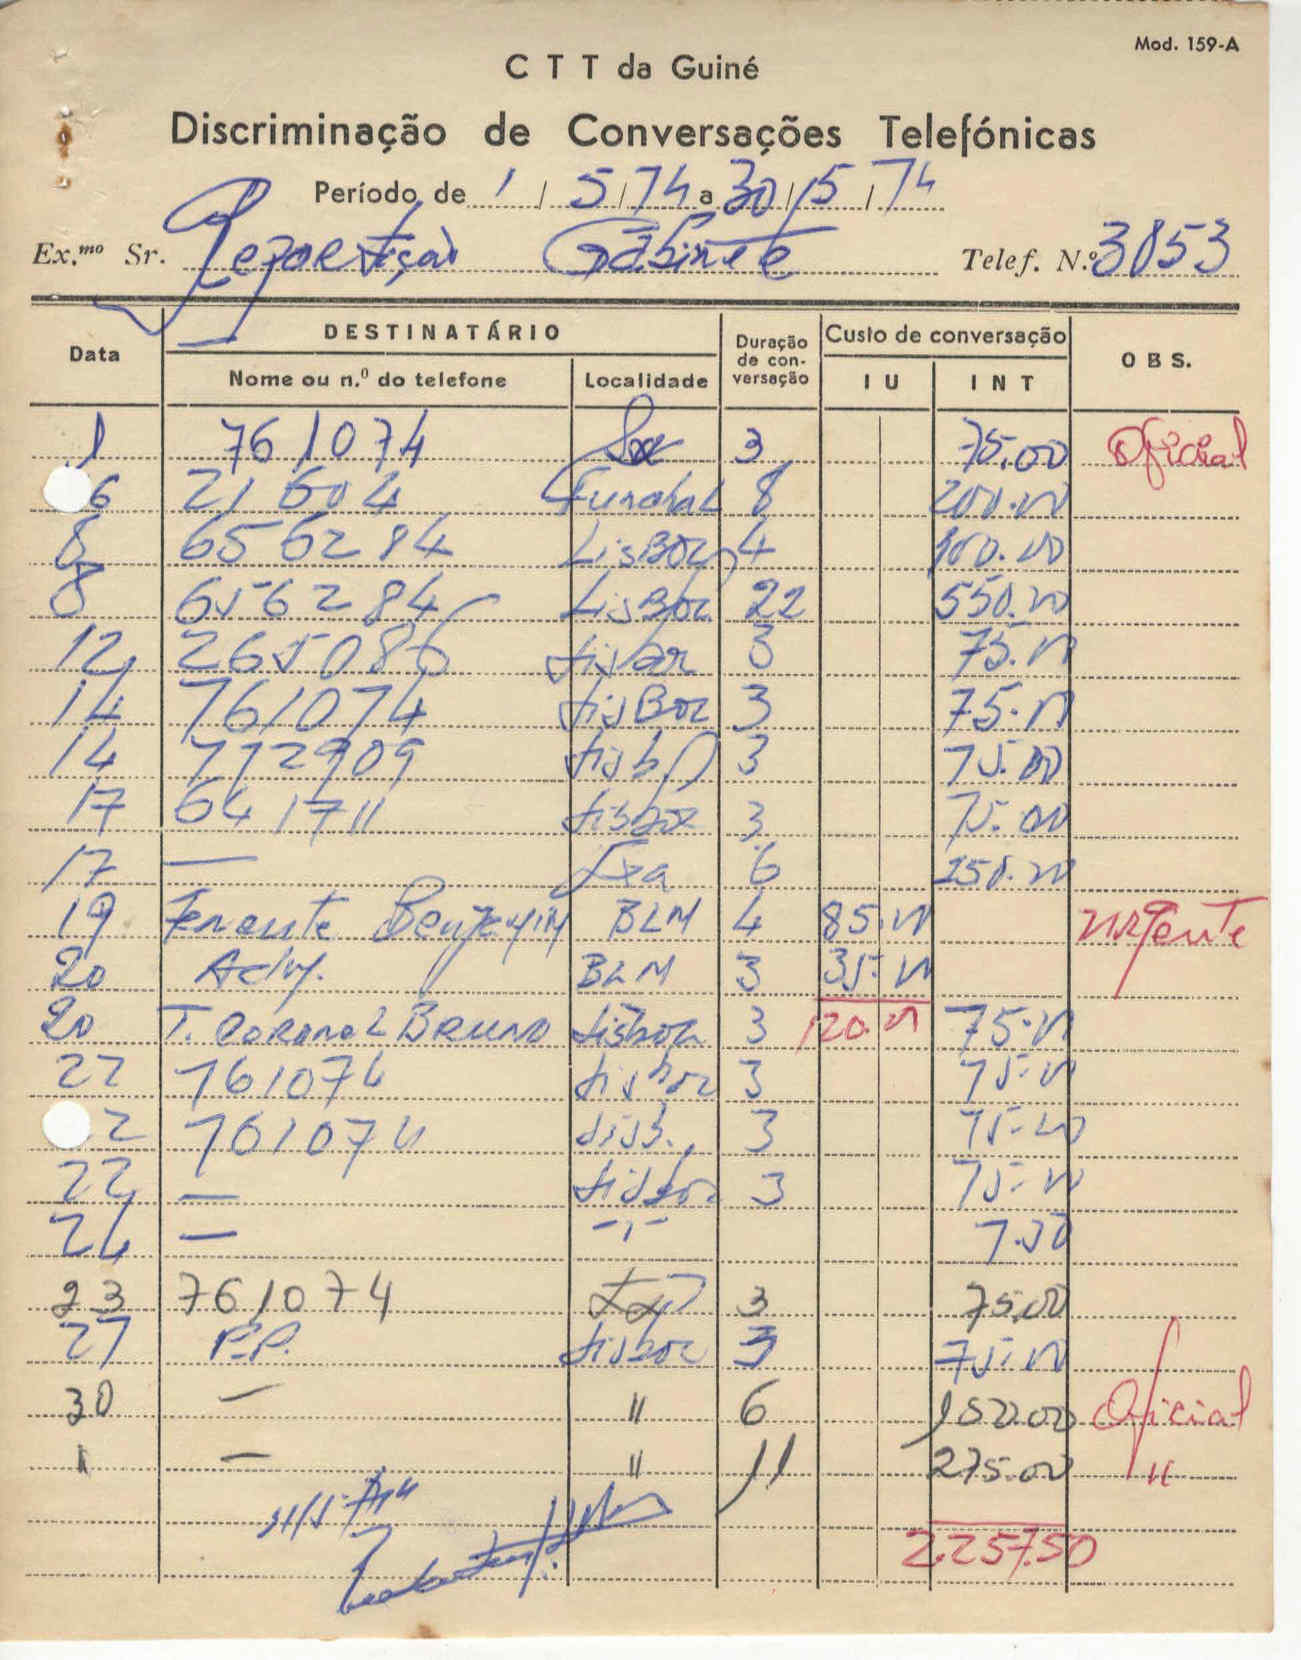 Mod. 159-A
C T T da Guiné
Discriminação de Conversações Telefónicas
Período de 1 / 5 / 74 a 30 / 5 / 74
Ex.mo Sr. Repartição Gabinete Telef. N.º 3853
Data DESTINATÁRIO Duração de conversação Custo de conversação OBS.
Nome ou n.º do telefone Localidade I U I N T
1 761074 Lxa 3 75.00 Oficial
6 21604 Funchal 8 200.00
8 656284 Lisboa 4 100.00
8 656284 Lisboa 22 550.00
12 265086 Lisboa 3 75.00
14 761074 Lisboa 3 75.00
14 772909 Lisboa 3 75.00
17 641711 Lisboa 3 75.00
17 — Lxa 6 150.00
19 Tenente Benjamim BLM 4 85.00 urgente
20 BLM 3 35.00
20 T. Coronel Bruno Lisboa 3 120.00 75.00
22 761074 Lisboa 3 75.00
2 761074 Lisb. 3 75.00
22 — Lisboa 3 75.00
22 — -,- 7.50
23 761074 Lxa 3 75.00
27 P.P. Lisboa 3 75.00
30 — " 6 150.00 Oficial
1 — " 11 275.00 "
2.257.50